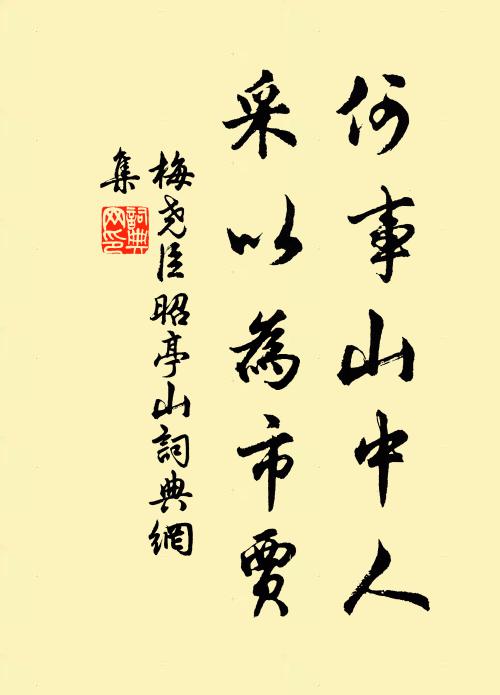 何事山中人
采以為市賈
梅尧臣昭亭山詞典網
集
詞典
网印